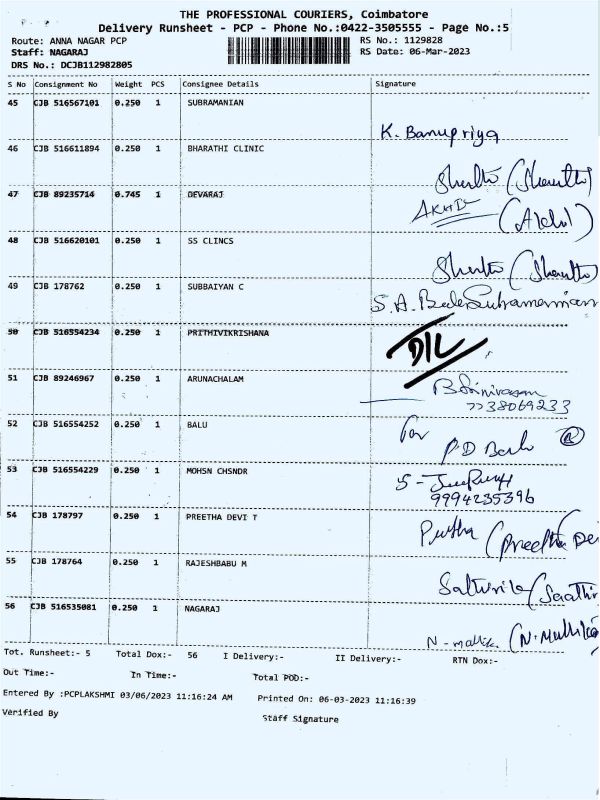 THE PROFESSIONAL COURIERS, Coimbatore
Delivery Runsheet - PCP - Phone No.:0422-3505555 - Page No.:5
Route: ANNA NAGAR PCP RS No.: 1129828
Staff: NAGARAJ RS Date: 06-Mar-2023
DRS No.: DCJB112982805
S No Consignment No Weight PCS Consignee Details Signature
45 CJB 516567101 0.250 1 SUBRAMANIAN
K. Banupriya
46 CJB 516611894 0.250 1 BHARATHI CLINIC
47 CJB 89235714 0.745 1 DEVARAJ
48 CJB 516620101 0.250 1 SS CLINCS
49 CJB 178762 0.250 1 SUBBAIYAN C
S. A. BalaSubramanian
50 CJB 516554234 0.250 1 PRITHIVIKRISHANA
D/L
51 CJB 89246967 0.250 1 ARUNACHALAM
B Srinivasan
7738069233
52 CJB 516554252 0.250 1 BALU
For
53 CJB 516554229 0.250 1 MOHSN CHSNDR
9994235396
54 CJB 178797 0.250 1 PREETHA DEVI T
(Preetha De
55 CJB 178764 0.250 1 RAJESHBABU M
56 CJB 516535081 0.250 1 NAGARAJ
N- mallika
Tot. Runsheet:- 5 Total Dox:- 56 I Delivery:- II Delivery:- RTN Dox:-
Out Time:- In Time:- Total POD:-
Entered By :PCPLAKSHMI 03/06/2023 11:16:24 AM Printed On: 06-03-2023 11:16:39
Verified By Staff Signature